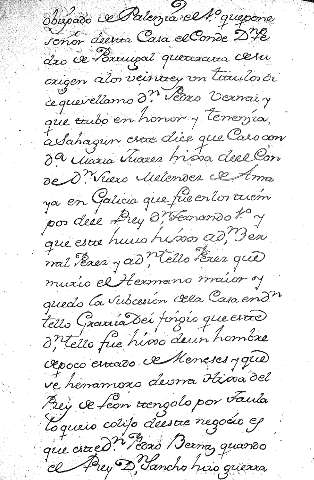 obispado de Palenzia el 1º. que pone
señor de esta Casa el Conde Dⁿ. Pe
dro de Portugal que trata de su
origen a los veinte y un titulos di
ze que se llamo Dⁿ. Pedro Bernaz y
que tubo en honor y tenenzia,
a Sahagun este dice que Caso con
Dª Maria Suarez hixa de el Con
de Dⁿ. Suero Melendez de Ama
ya en Galicia que fue en los tiem
pos de el Rey Dⁿ. Fernando 1º. y
que este huuo hixos a Dⁿ. Ber
nal Perez y a Dⁿ. tello Perez que
murio el Hermano maior y
quedo la subcesion de la Casa en Dⁿ
tello Garzia Dei fingio que este
Dⁿ. tello fue hixo de un hombre
de poco estado de Meneses y que
se henamoro de una Hixa del
Rey de Leon tengolo por faula
lo que io colijo de este negocio es
que este Dⁿ. Pedro Bernaz quando
el Rey Dⁿ. Sancho hizo guerra